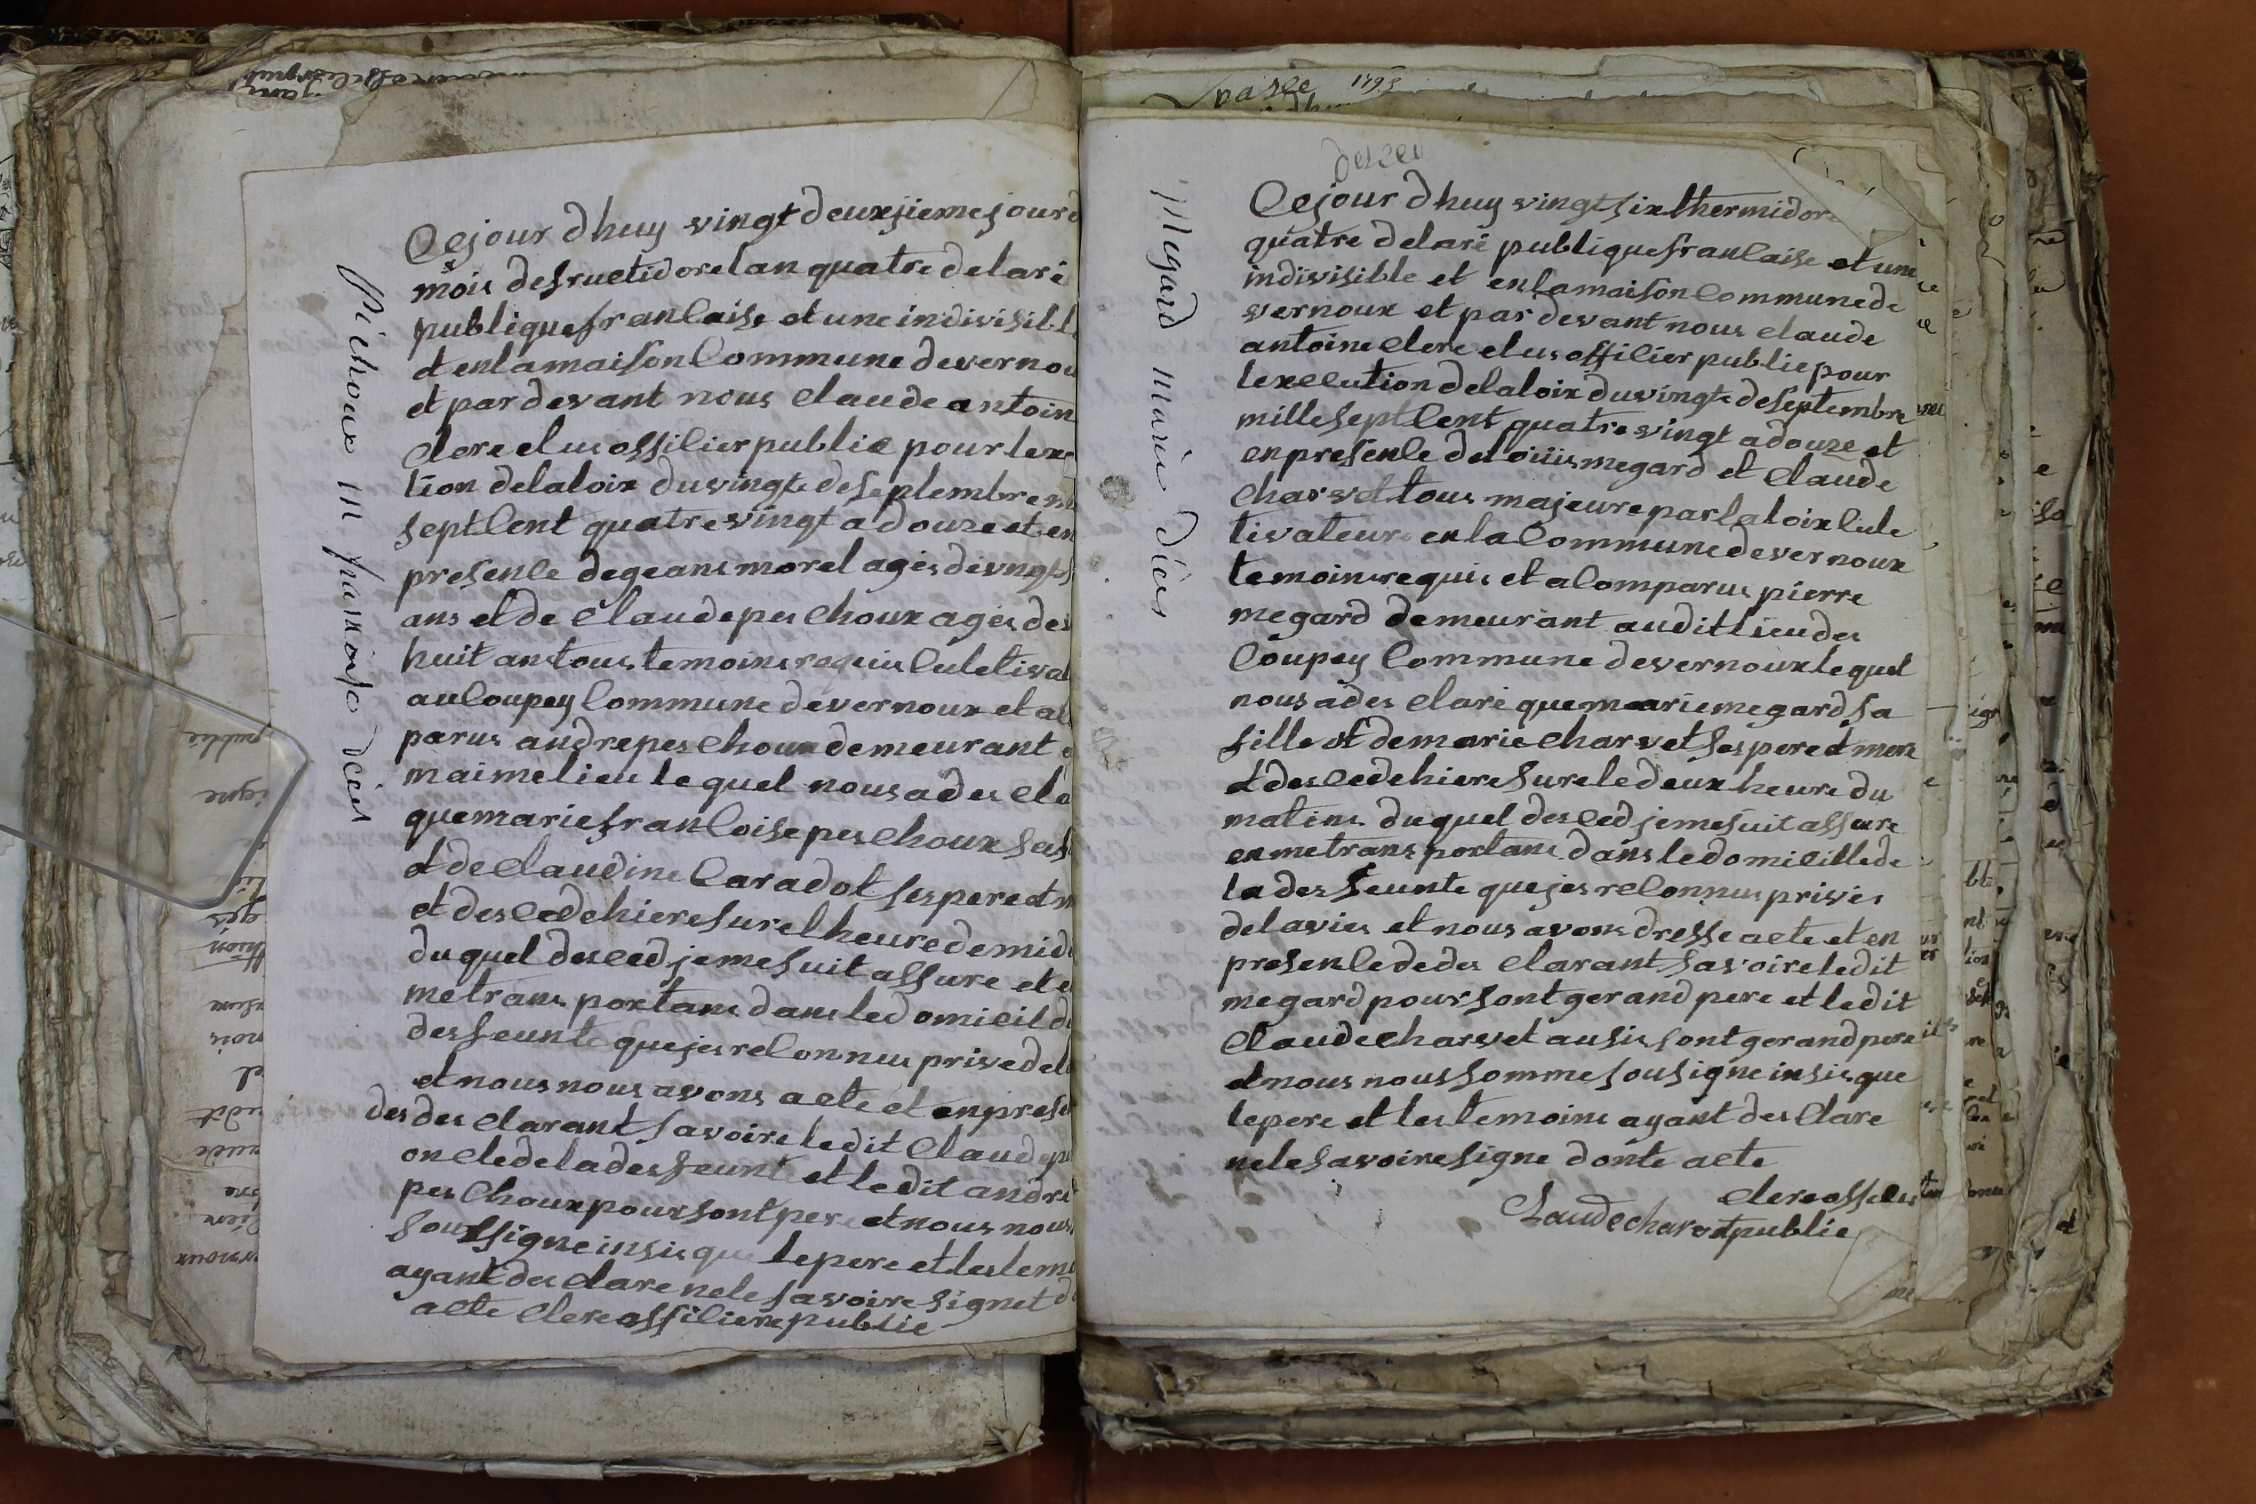 Pichoux m françoise décès
Cejour dhuy vingt deuxjieme jour d
mois defructidorelan quatre delare
publique francaise et une indivisibl
et enlamaison Commune devernou
et pardevant nous claude antoin
clere elus officilier public pour lexe
tion delaloix duvingte deseptembre m
septcent quatre vingt adouze et en
presence degeans morel ages devingt
ans et de Claude peschoux ages des
huit ans tous temoins requis Culetival
auCoupey Commune devernoux et al
parus andre peschoux demeurant
maime lieu lequel nous a des cla
quemariefrancoise peschoux sa
et de Claudine Caradot ses pere et m
et desced dehiere sure lheure demid
duquel desced jemesuit assure et e
metrans portans dans ledomicil d
desfeunte quejes reconnus prive del
et nous nous avons acte et en prese
des des clarant savoire ledit Claude p
oncle dela desfeunte et ledit andre
peschoux pour sont pere et nous nous
soussigne insis que lepere et les tem
ayant des clare nele savoire signet d
acte clere officiliere public
vasee 1795
desces
Megard marie décès
Cejour dhuy vingt six thermidore
quatre delare publique francaise et une
indivisible et enlamaison Commune de
vernoux et pardevant nous claude
antoine clere elus officilier public pour
lexecution delaloix duvingte deseptembre
mille septcent quatre vingt adouze et
enpresence delouis megard et Claude
Charvet tous majeure par laloix Cule
tivateure en la Commune devernoux
temoins requis et aComparus pierre
megard demeurant audit lieu des
Coupey Commune devernoux lequel
nous a des clare que marie megard sa
fille et de marie Charvet ses pere et mere
et desced dehiere sure le deux heure du
matins duquel desced jemesuit assure
en metrans portans dans ledomicille de
la desfeunte quejes reconnus prives
delavies et nous avons dresse acte et en
presence dedes clarant savoire ledit
megard pour sont gerand pere et ledit
Claude Charvet ausis sont gerand pere
et nous nous somme sousigne insis que
lepere et les temoins ayant des clare
nele savoire signe donte acte
clere officilier
Claude charvet public